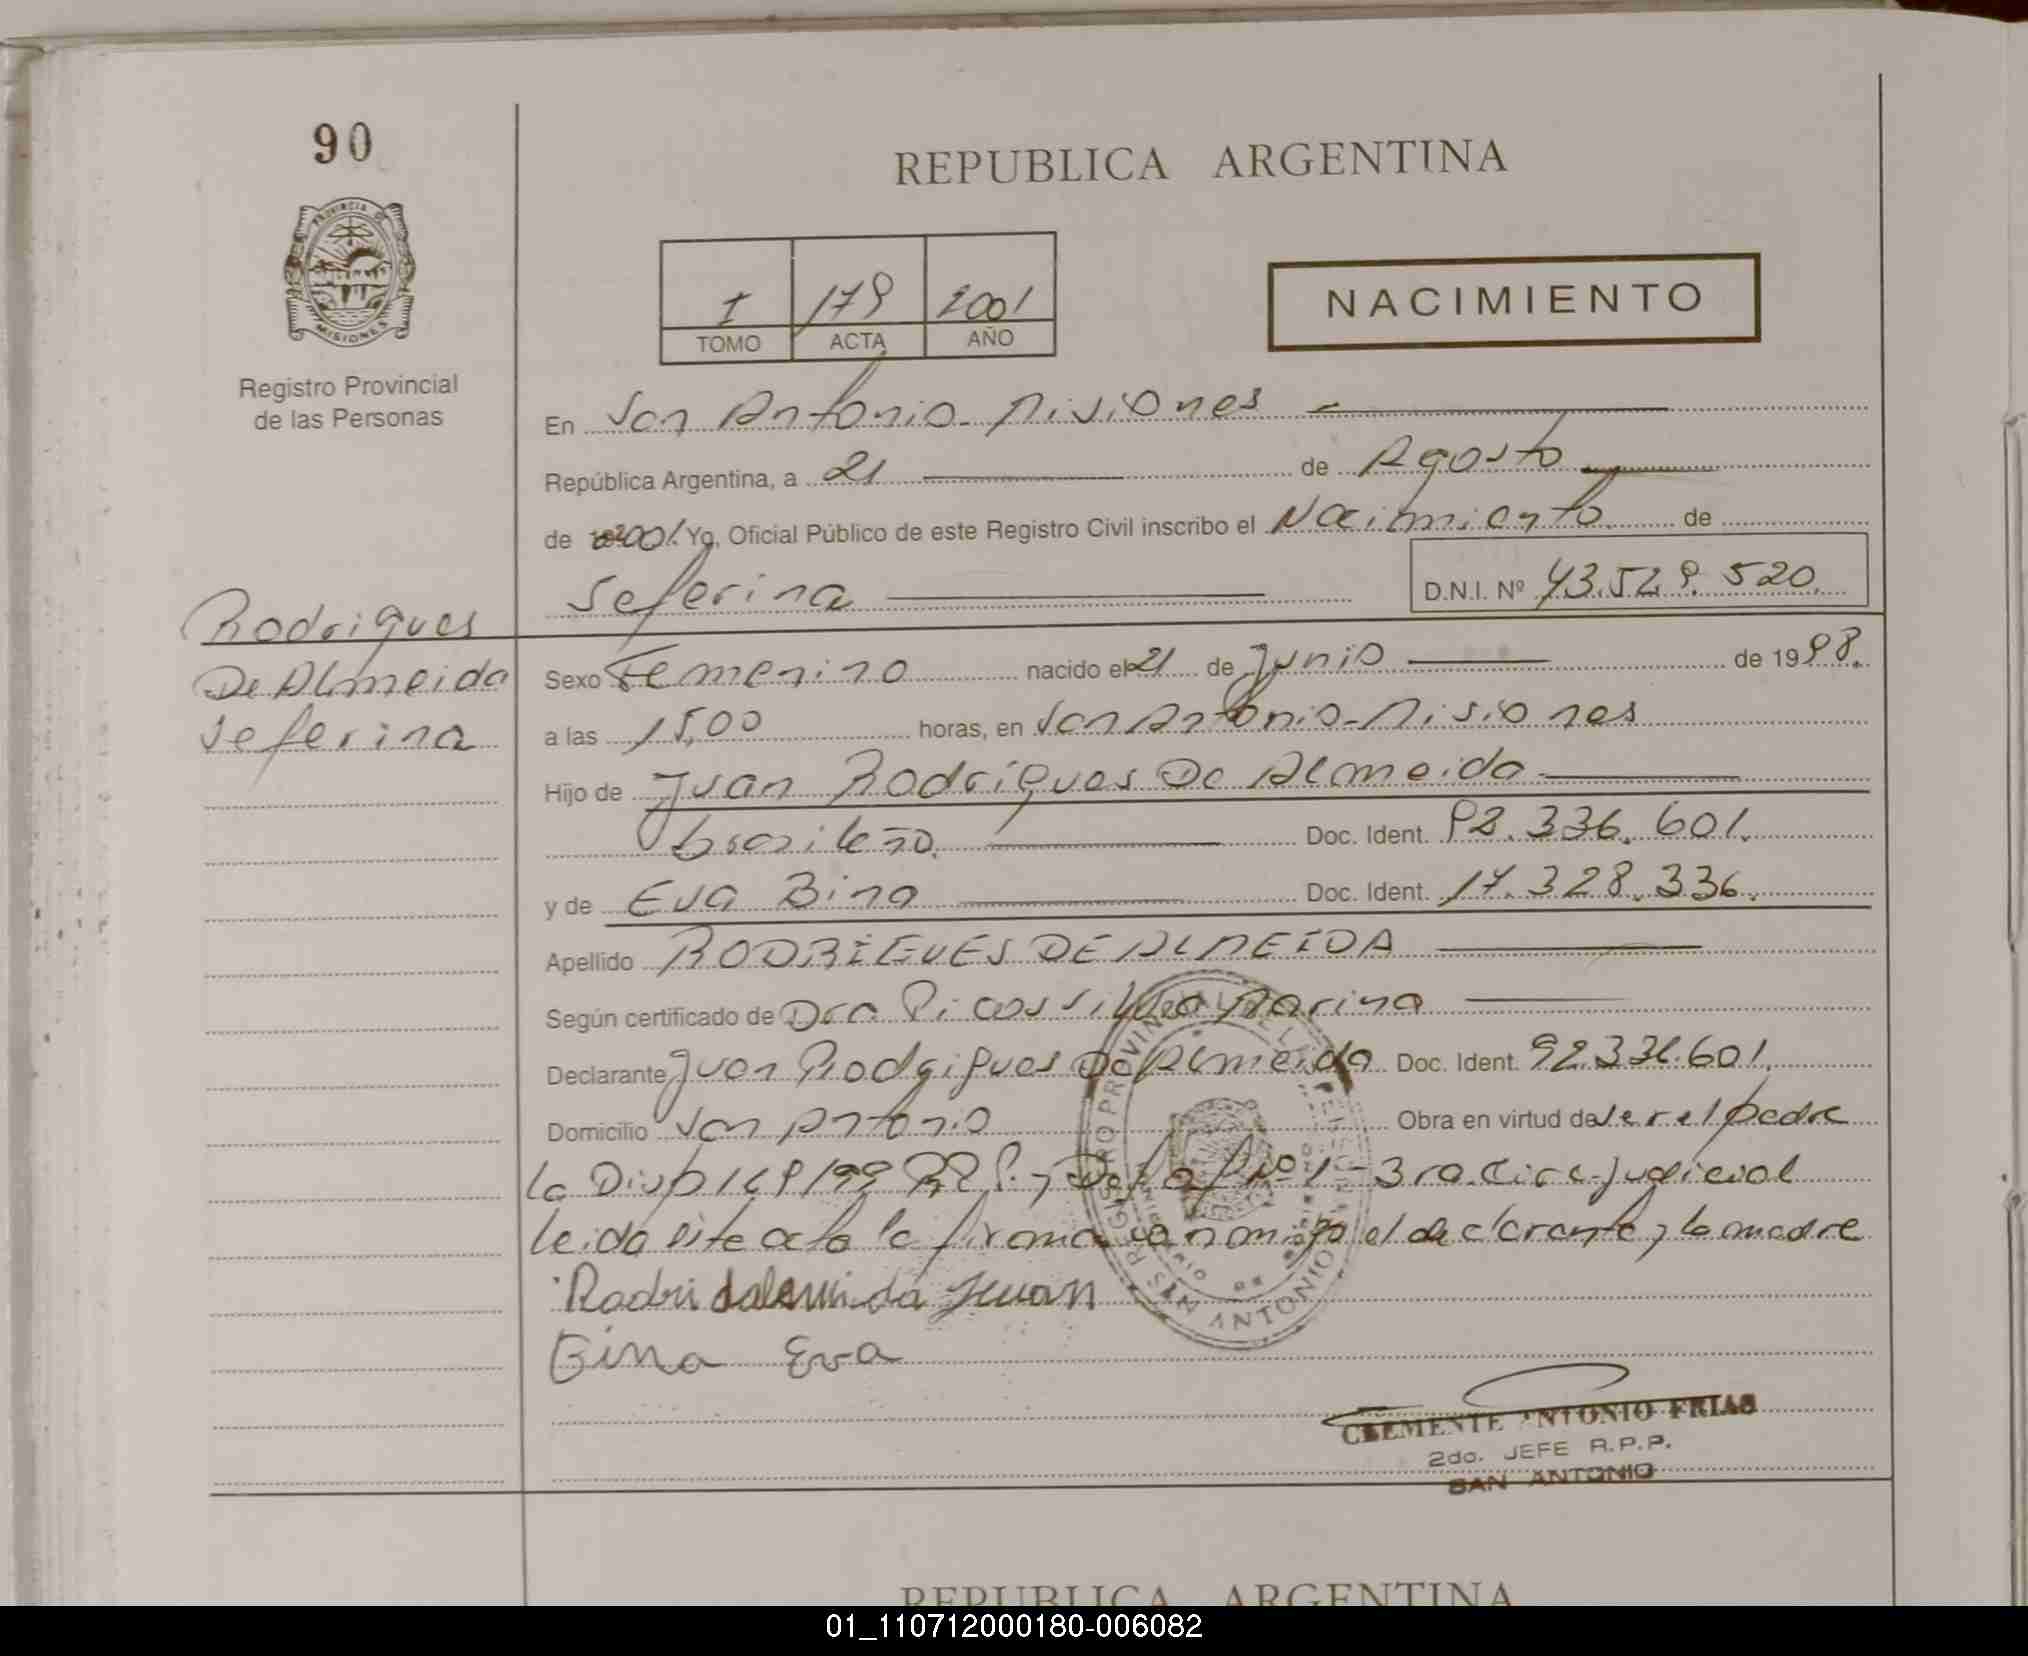 90
REPUBLICA ARGENTINA
PROVINCIA DE MISIONES
I 179 2001
TOMO ACTA AÑO
NACIMIENTO
Registro Provincial
de las Personas
En San Antonio - Misiones
República Argentina, a 21 de Agosto
de 2001. Yo, Oficial Público de este Registro Civil inscribo el Nacimiento de
Seferina D.N.I. Nº 43.529.520.
Rodrigues
De Almeida
Seferina
Sexo Femenino nacido el 21 de Junio de 1998.
a las 15,00 horas, en San Antonio - Misiones
Hijo de Juan Rodrigues De Almeida
brasileño. Doc. Ident. 92.336.601.
y de Eva Bina Doc. Ident. 17.328.336.
Apellido RODRIGUES DE ALMEIDA
Según certificado de Dra. Silvia Marina
Declarante Juan Rodrigues De Almeida Doc. Ident. 92.336.601.
Domicilio San Antonio Obra en virtud de ser el padre
la Disp 169/99 Nº 1 - 3ra. Circ. Judicial
leida este acta la firma conmigo el declarante y la madre
Rodri dalemida Juan
Bina Eva
REGISTRO PROVINCIAL DE LAS PERSONAS
SAN ANTONIO
CLEMENTE ANTONIO FRIAS
2do. JEFE R.P.P.
SAN ANTONIO
REPUBLICA ARGENTINA
01_110712000180-006082